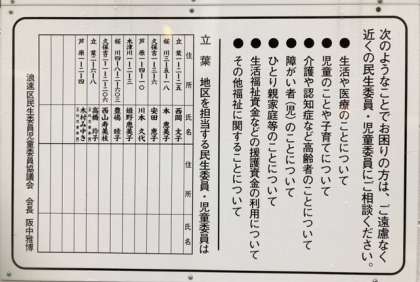 次のようなことでお困りの方は、ご遠慮なく
近くの民生委員・児童委員にご相談ください。
● 生活や医療のことについて
● 児童のことや子育てについて
● 介護や認知症など高齢者のことについて
● 障がい者(児)のことについて
● ひとり親家庭等のことについて
● 生活福祉資金などの援護資金の利用について
● その他福祉に関することについて
立葉 地区を担当する民生委員・児童委員は
住所 氏名 住所 氏名
立葉 一‐二‐二五 西岡 文子
桜川 三‐二‐ 本 恵美子
久保吉 一‐ 安田 恵子
芦原 一‐四‐一〇 川本 久代
木津川 一‐ 細野恵美子
桜川 四‐八‐ 豊嶋 睦子
久保吉 一‐ 西山寿美枝
立葉 二‐六‐八 高橋 玲子
芦原 一‐二‐四 木村みゆき
浪速区民生委員児童委員協議会 会長 阪中雅博